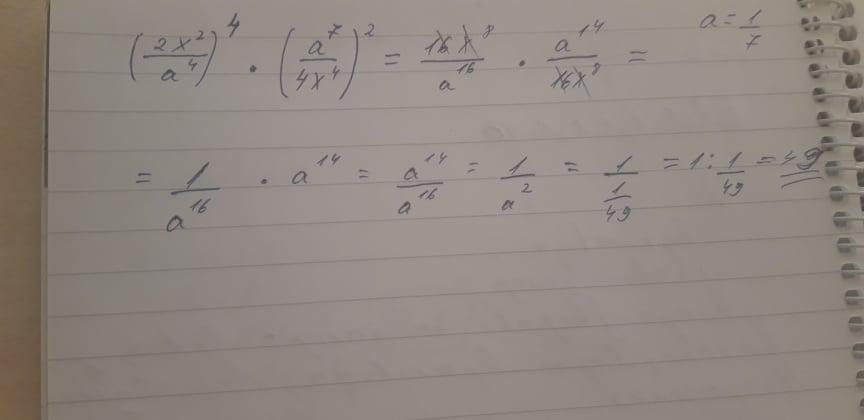 (2x²/a⁴)⁴ · (a⁷/4x⁴)² = 16x⁸/a¹⁶ · a¹⁴/16x⁸ = a = 1/7
= 1/a¹⁶ · a¹⁴ = a¹⁴/a¹⁶ = 1/a² = 1/(1/49) = 1 : 1/49 = 49